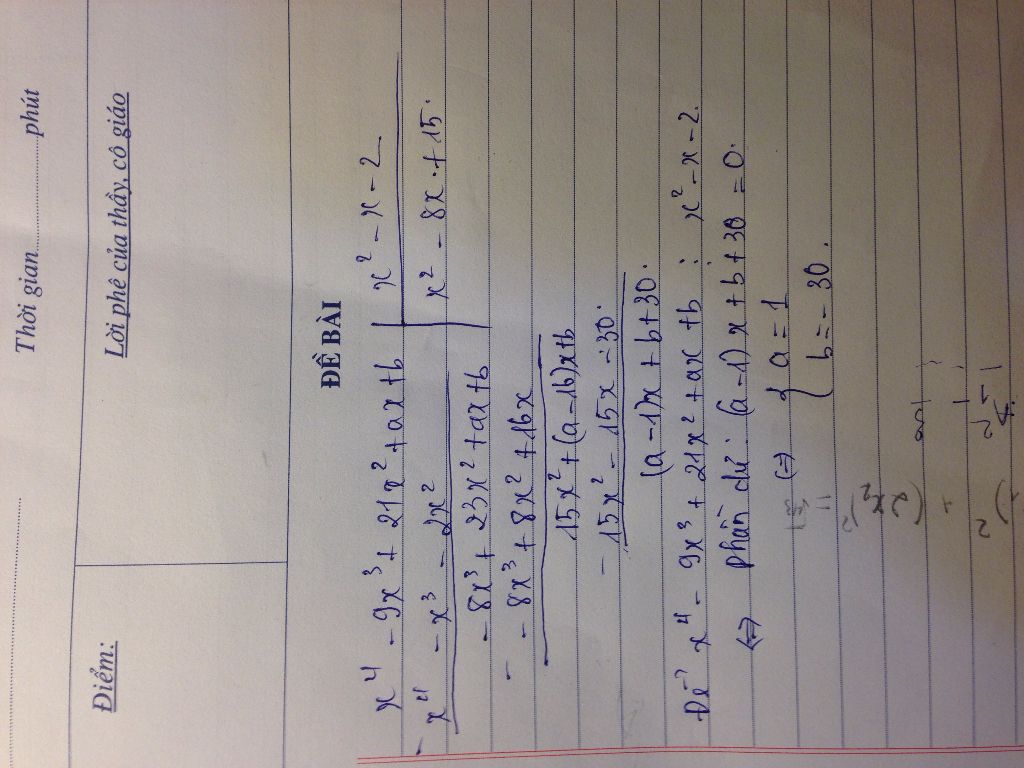 Thời gian..............phút
Điểm:
Lời phê của thầy, cô giáo
ĐỀ BÀI
x⁴ - 9x³ + 21x² + ax + b | x² - x - 2
- x⁴ - x³ - 2x² | x² - 8x + 15.
- 8x³ + 23x² + ax + b
- - 8x³ + 8x² + 16x
15x² + (a - 16)x + b
- 15x² - 15x - 30.
(a - 1)x + b + 30.
Để x⁴ - 9x³ + 21x² + ax + b ⋮ x² - x - 2.
⇔ phần dư: (a - 1)x + b + 30 = 0.
⇔ { a = 1
b = - 30.